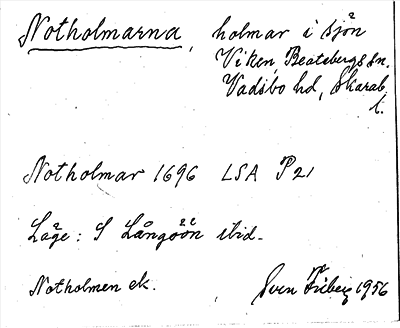 Notholmarna, holmar i sjön
Viken, Beatebergs sn.
Vadsbo hd, Skarab.
l.
Notholmar 1696 LSA P21
Läge: S Långöön ibid.
Notholmen ek. Sven Friberg 1956